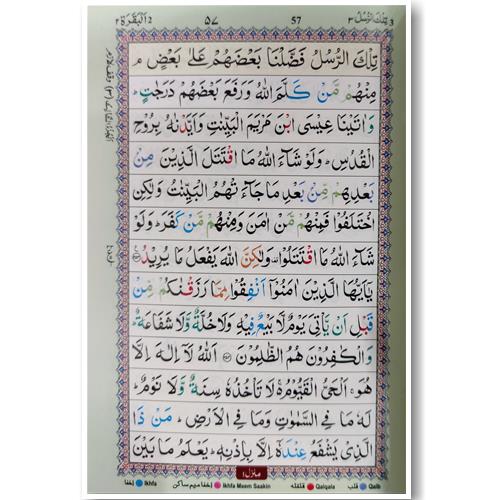 تلك الرسل ٣ 3 57 ٥٧ البقرة ٢ 2
تِلْكَ الرُّسُلُ فَضَّلْنَا بَعْضَهُمْ عَلٰى بَعْضٍ ۘ
مِنْهُمْ مَّنْ كَلَّمَ اللّٰهُ وَرَفَعَ بَعْضَهُمْ دَرَجٰتٍ ؕ
وَاٰتَيْنَا عِيْسَى ابْنَ مَرْيَمَ الْبَيِّنٰتِ وَاَيَّدْنٰهُ بِرُوْحِ
الْقُدُسِ ؕ وَلَوْ شَآءَ اللّٰهُ مَا اقْتَتَلَ الَّذِيْنَ مِنْۢ
بَعْدِهِمْ مِّنْۢ بَعْدِ مَا جَآءَتْهُمُ الْبَيِّنٰتُ وَلٰكِنِ
اخْتَلَفُوْا فَمِنْهُمْ مَّنْ اٰمَنَ وَمِنْهُمْ مَّنْ كَفَرَ ؕ وَلَوْ
شَآءَ اللّٰهُ مَا اقْتَتَلُوْا وَلٰكِنَّ اللّٰهَ يَفْعَلُ مَا يُرِيْدُ
يٰۤاَيُّهَا الَّذِيْنَ اٰمَنُوْۤا اَنْفِقُوْا مِمَّا رَزَقْنٰكُمْ مِّنْ
قَبْلِ اَنْ يَّاْتِيَ يَوْمٌ لَّا بَيْعٌ فِيْهِ وَلَا خُلَّةٌ وَّلَا شَفَاعَةٌ ؕ
وَالْكٰفِرُوْنَ هُمُ الظّٰلِمُوْنَ اَللّٰهُ لَاۤ اِلٰهَ اِلَّا
هُوَ ۚ اَلْحَيُّ الْقَيُّوْمُ ۚ لَا تَاْخُذُهٗ سِنَةٌ وَّلَا نَوْمٌ ؕ
لَهٗ مَا فِي السَّمٰوٰتِ وَمَا فِي الْاَرْضِ ؕ مَنْ ذَا
الَّذِيْ يَشْفَعُ عِنْدَهٗۤ اِلَّا بِاِذْنِهٖ ؕ يَعْلَمُ مَا بَيْنَ
منزل ١
Qalb قلب Qalqala قلقله Ikhfa Meem Saakin اخفا ميم ساكن Ikhfa اخفا